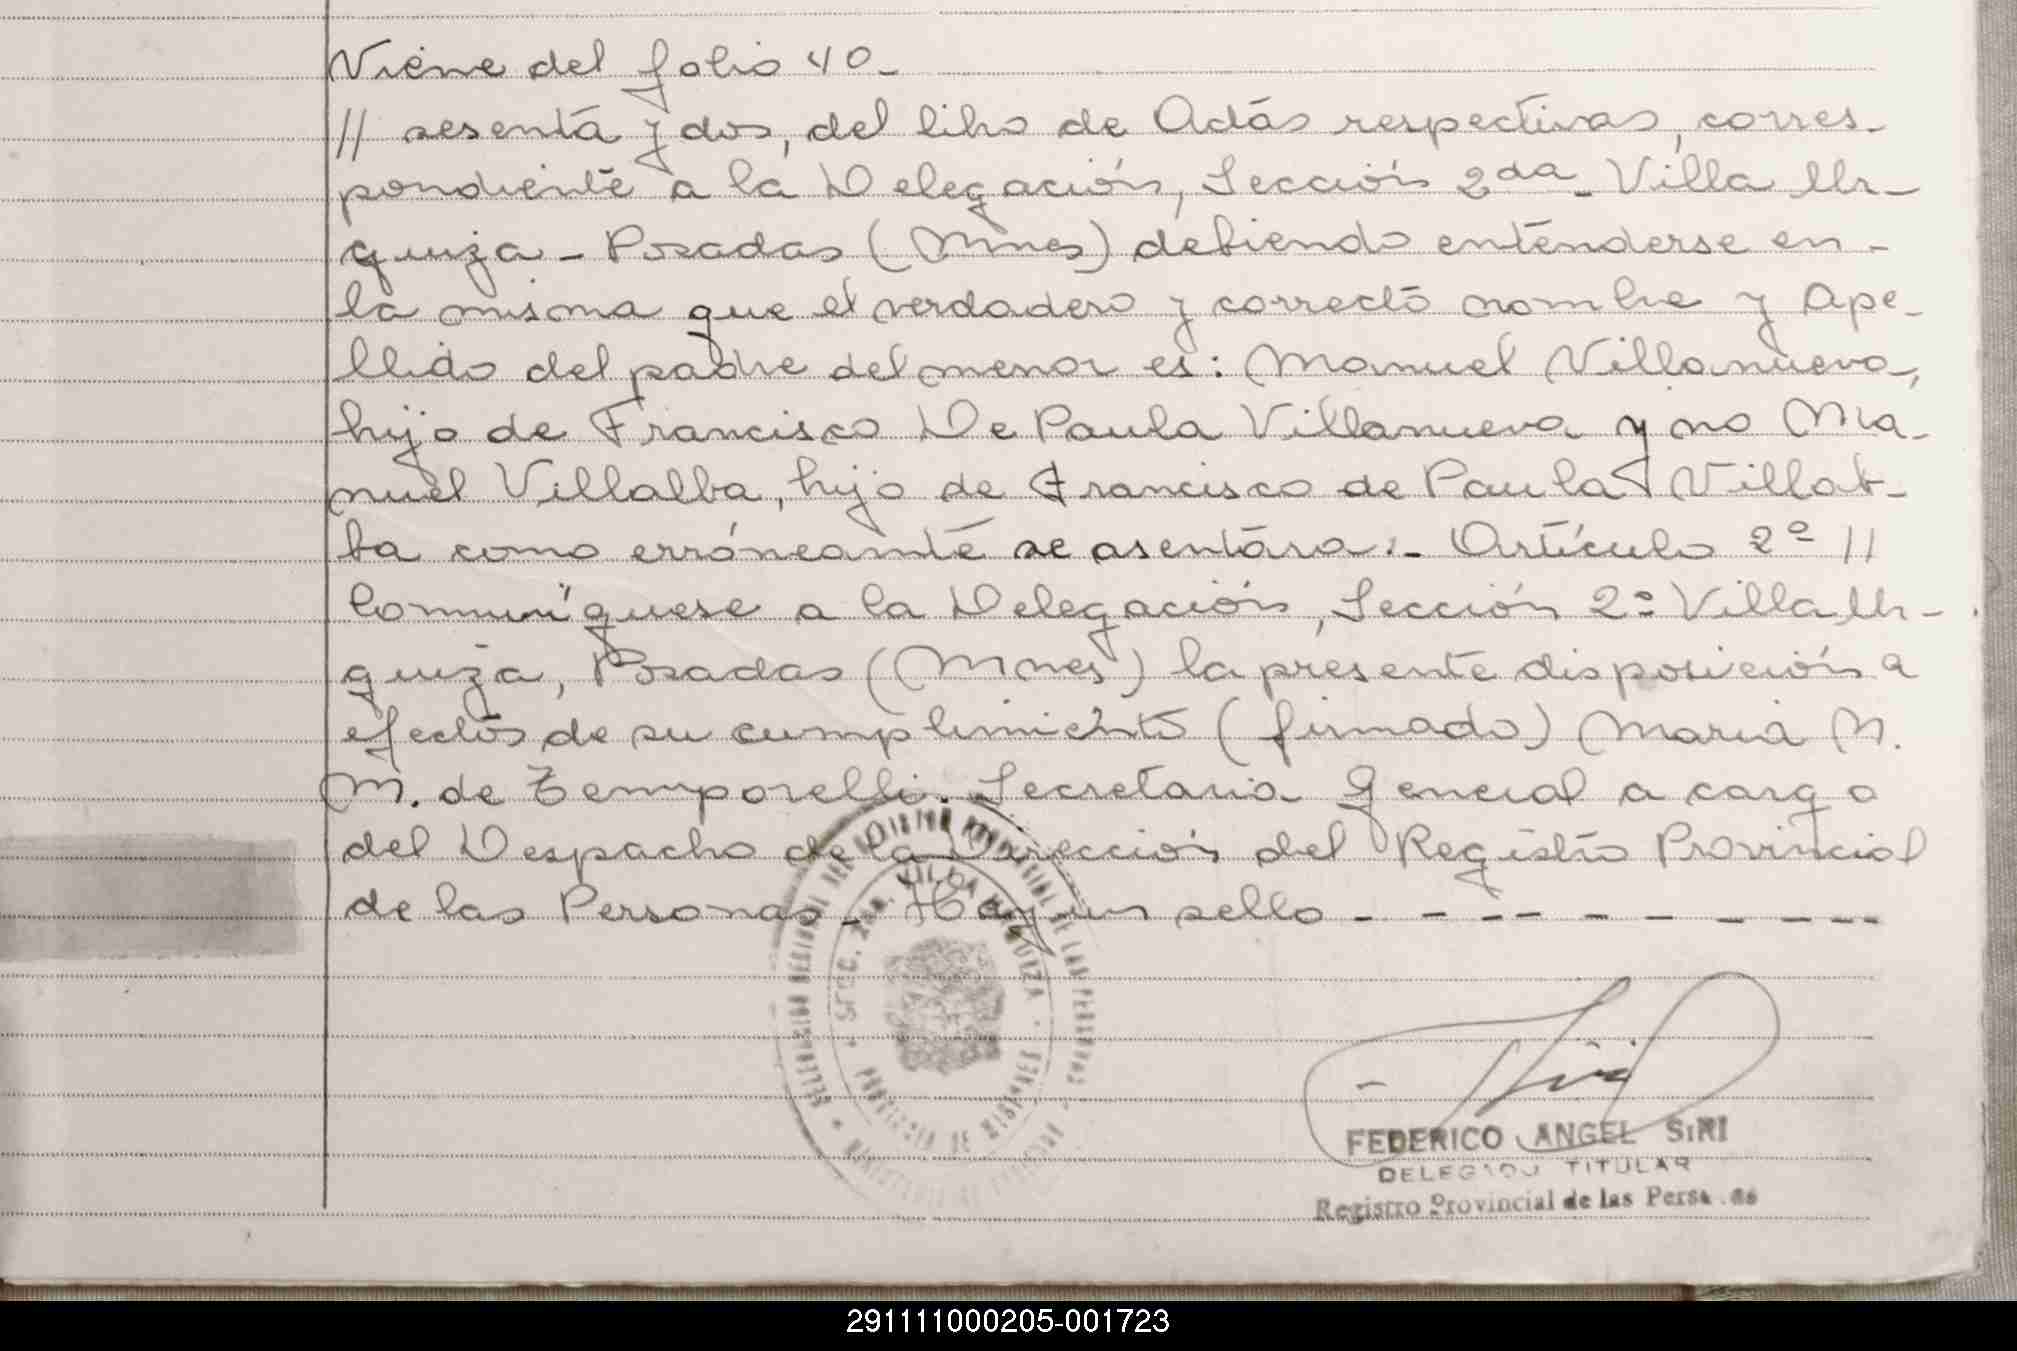 Viene del folio 40-
// sesenta y dos, del libro de Actas respectivas, corres-
pondiente a la Delegación, Sección 2da - Villa Ur-
quiza - Posadas (Mnes) debiendo entenderse en -
la misma que el verdadero y correcto nombre y ape-
llido del padre del menor es: Manuel Villanueva,
hijo de Francisco De Paula Villanueva y no Ma-
nuel Villalba, hijo de Francisco de Paula Villal-
ba como erróneamte se asentara.- Artículo 2º //
Comuníquese a la Delegación, Sección 2º Villa Ur-
quiza, Posadas (Mnes) la presente disposición a
efectos de su cumplimiento (firmado) Maria M.
M. de Temporelli. Secretaria General a cargo
del Despacho de la Dirección del Registro Provincial
de las Personas - Hay un sello - - - - - - - - - -
DELEGACION REGIONAL DEL REGISTRO PROVINCIAL DE LAS PERSONAS
SECC. 2da. VILLA URQUIZA
PROVINCIA DE MISIONES
FEDERICO ANGEL SIRI
DELEGADO TITULAR
Registro Provincial de las Personas
291111000205-001723